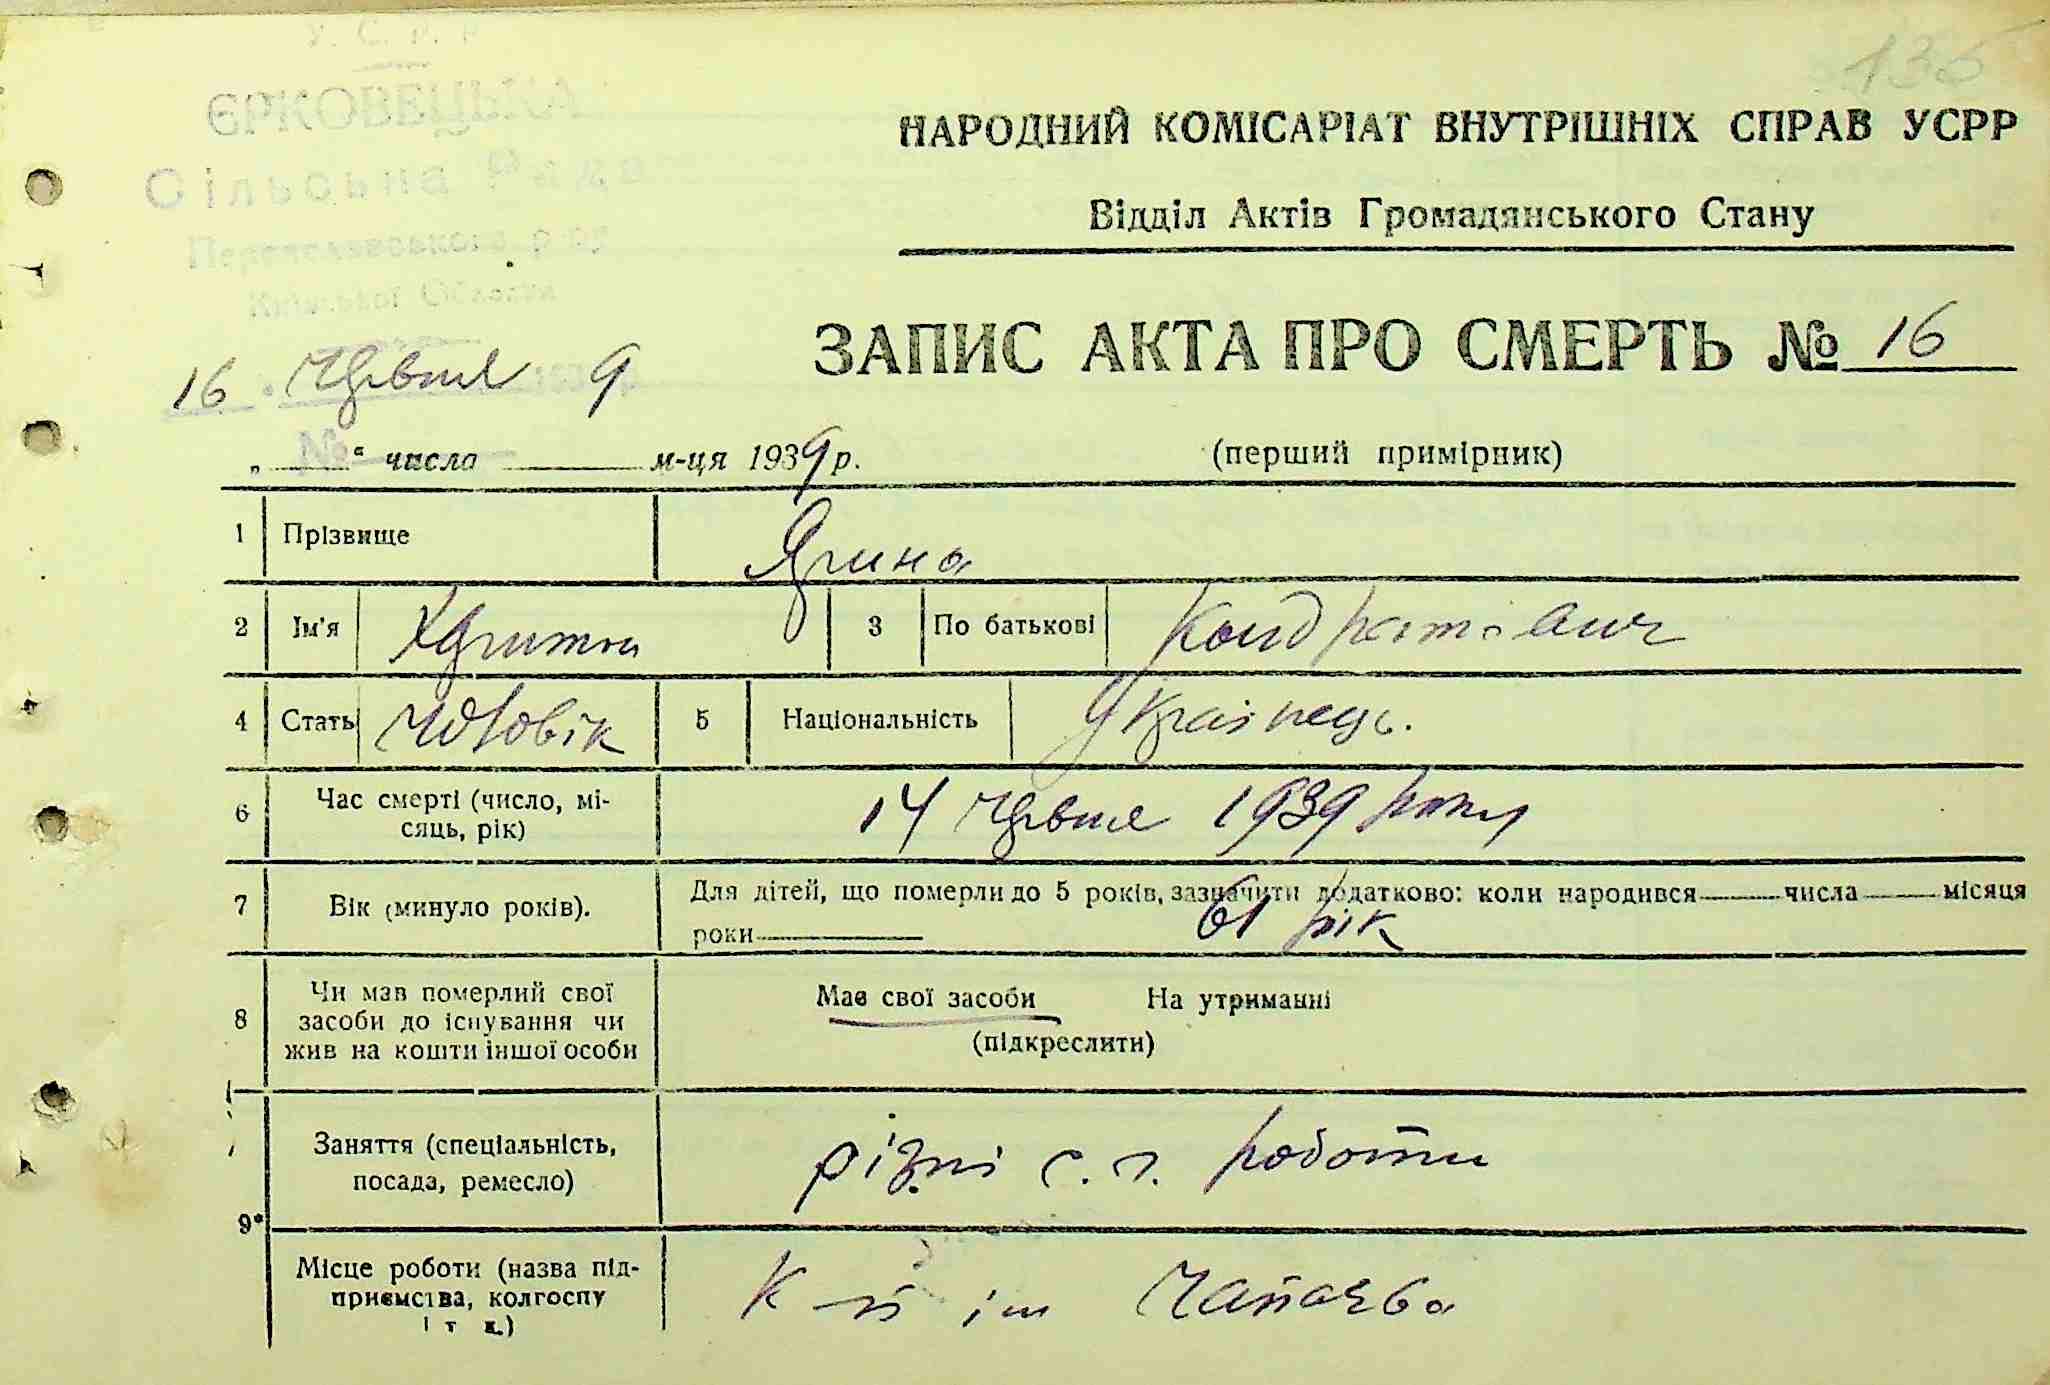 У. С. Р. Р.
ЄРКОВЕЦЬКА
Сільська Рада
Переяславського р-ну
Київської Области
16 червня 9
№
136
НАРОДНИЙ КОМІСАРІАТ ВНУТРІШНІХ СПРАВ УСРР
Відділ Актів Громадянського Стану
ЗАПИС АКТА ПРО СМЕРТЬ № 16
„ “ числа м-ця 1939 р.
(перший примірник)
1 Прізвище Ярина
2 Ім'я Хритон 3 По батькові Кондратович
4 Стать Чоловік 5 Національність Українець.
6 Час смерті (число, мі-
сяць, рік) 14 червня 1939 року
7 Вік (минуло років). Для дітей, що померли до 5 років, зазначити додатково: коли народився числа місяця
роки 61 рік
8 Чи мав померлий свої
засоби до існування чи
жив на кошти іншої особи
Має свої засоби На утриманні
(підкреслити)
Заняття (спеціальність,
посада, ремесло) різні с. г. роботи
9*
Місце роботи (назва під-
приємства, колгоспу
і т д.) К-п ім Чапаєва